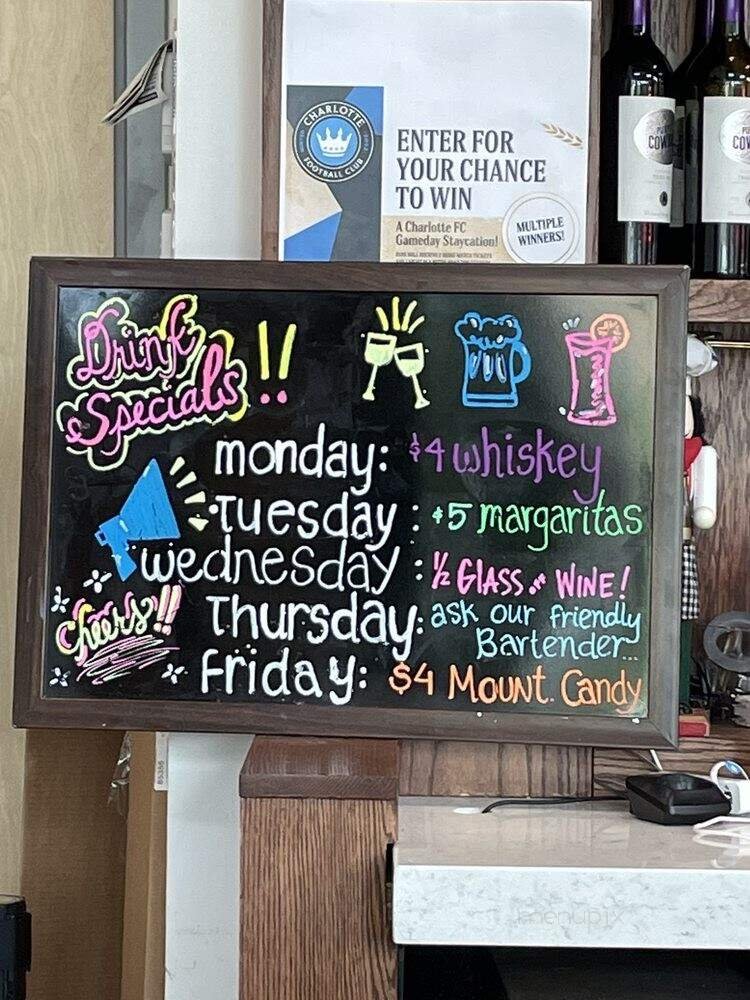 CHARLOTTE
FOOTBALL CLUB
ENTER FOR
YOUR CHANCE
TO WIN
A Charlotte FC
Gameday Staycation!
MULTIPLE
WINNERS!
COW
COW
Drink
Specials!!
monday: $4 whiskey
Tuesday: $5 margaritas
wednesday: ½ GLASS OF WINE!
Thursday: ask our friendly
Bartender...
friday: $4 Mount. Candy
Cheers!!
85356
menupix